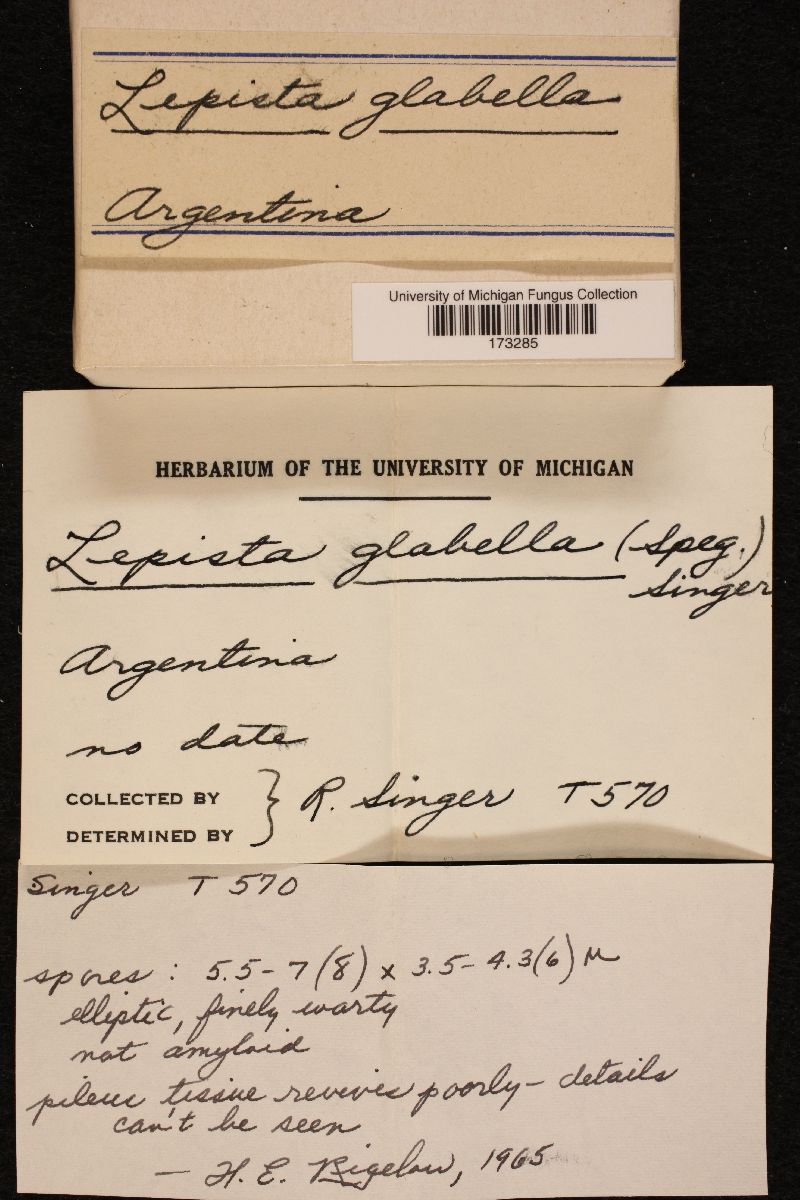 Lepista glabella
Argentina
University of Michigan Fungus Collection
173285
HERBARIUM OF THE UNIVERSITY OF MICHIGAN
Lepista glabella (Speg.)
Singer
Argentina
no date
COLLECTED BY
DETERMINED BY } R. Singer T 570
Singer T 570
spores : 5.5 - 7 (8) x 3.5 - 4.3 (6) μ
elliptic, finely warty
not amyloid
pileus tissue revives poorly - details
can't be seen
— H. E. Bigelow, 1965